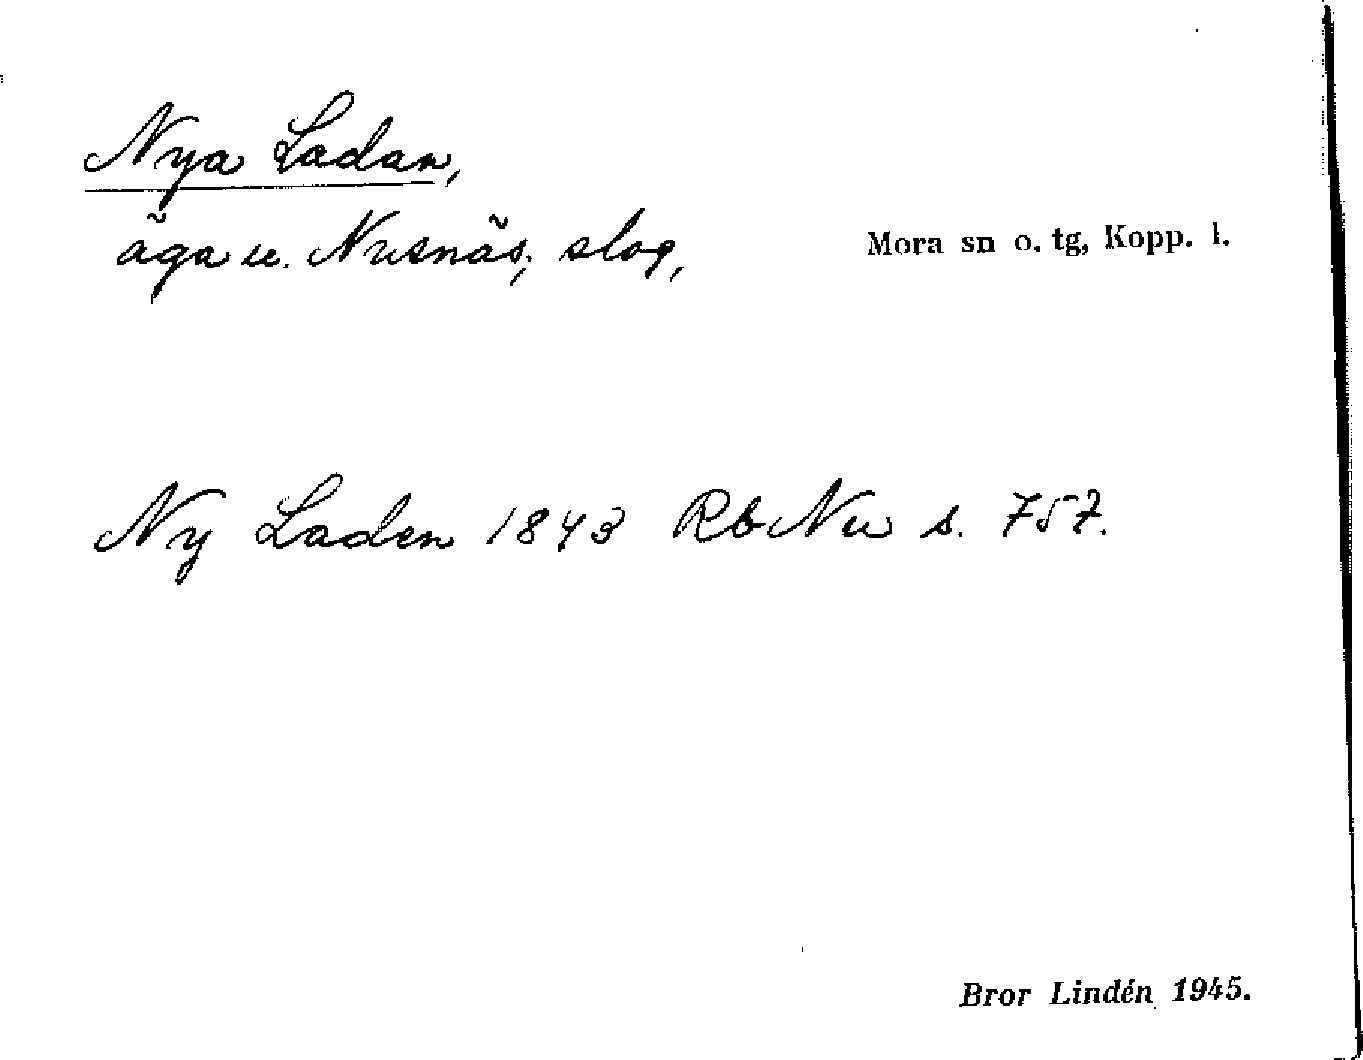 Nya Ladan,
äga u. Nusnäs, slog,
Mora sn o. tg, Kopp. l.
Ny Laden 1843 Rb Nu s. 757.
Bror Lindén 1945.